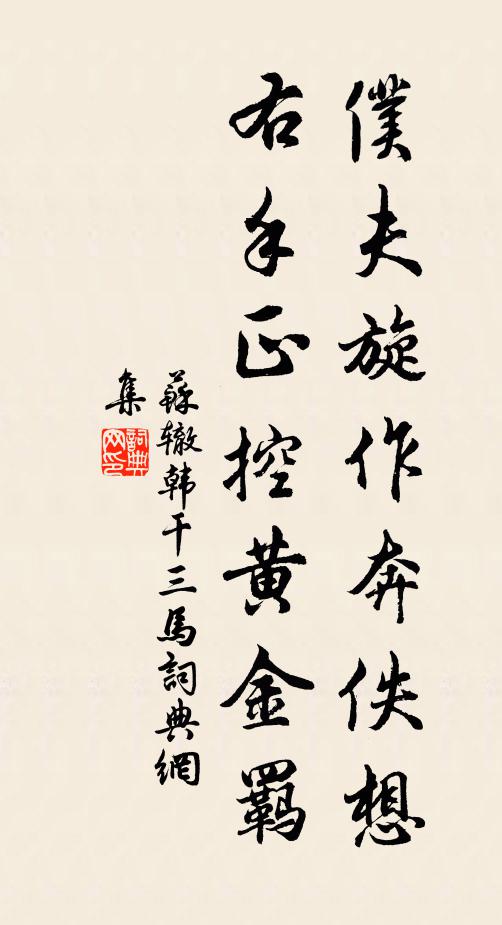 僕夫旋作奔佚想
右手正控黄金羈
蘇辙韩干三馬詞典網
集
詞典
网印